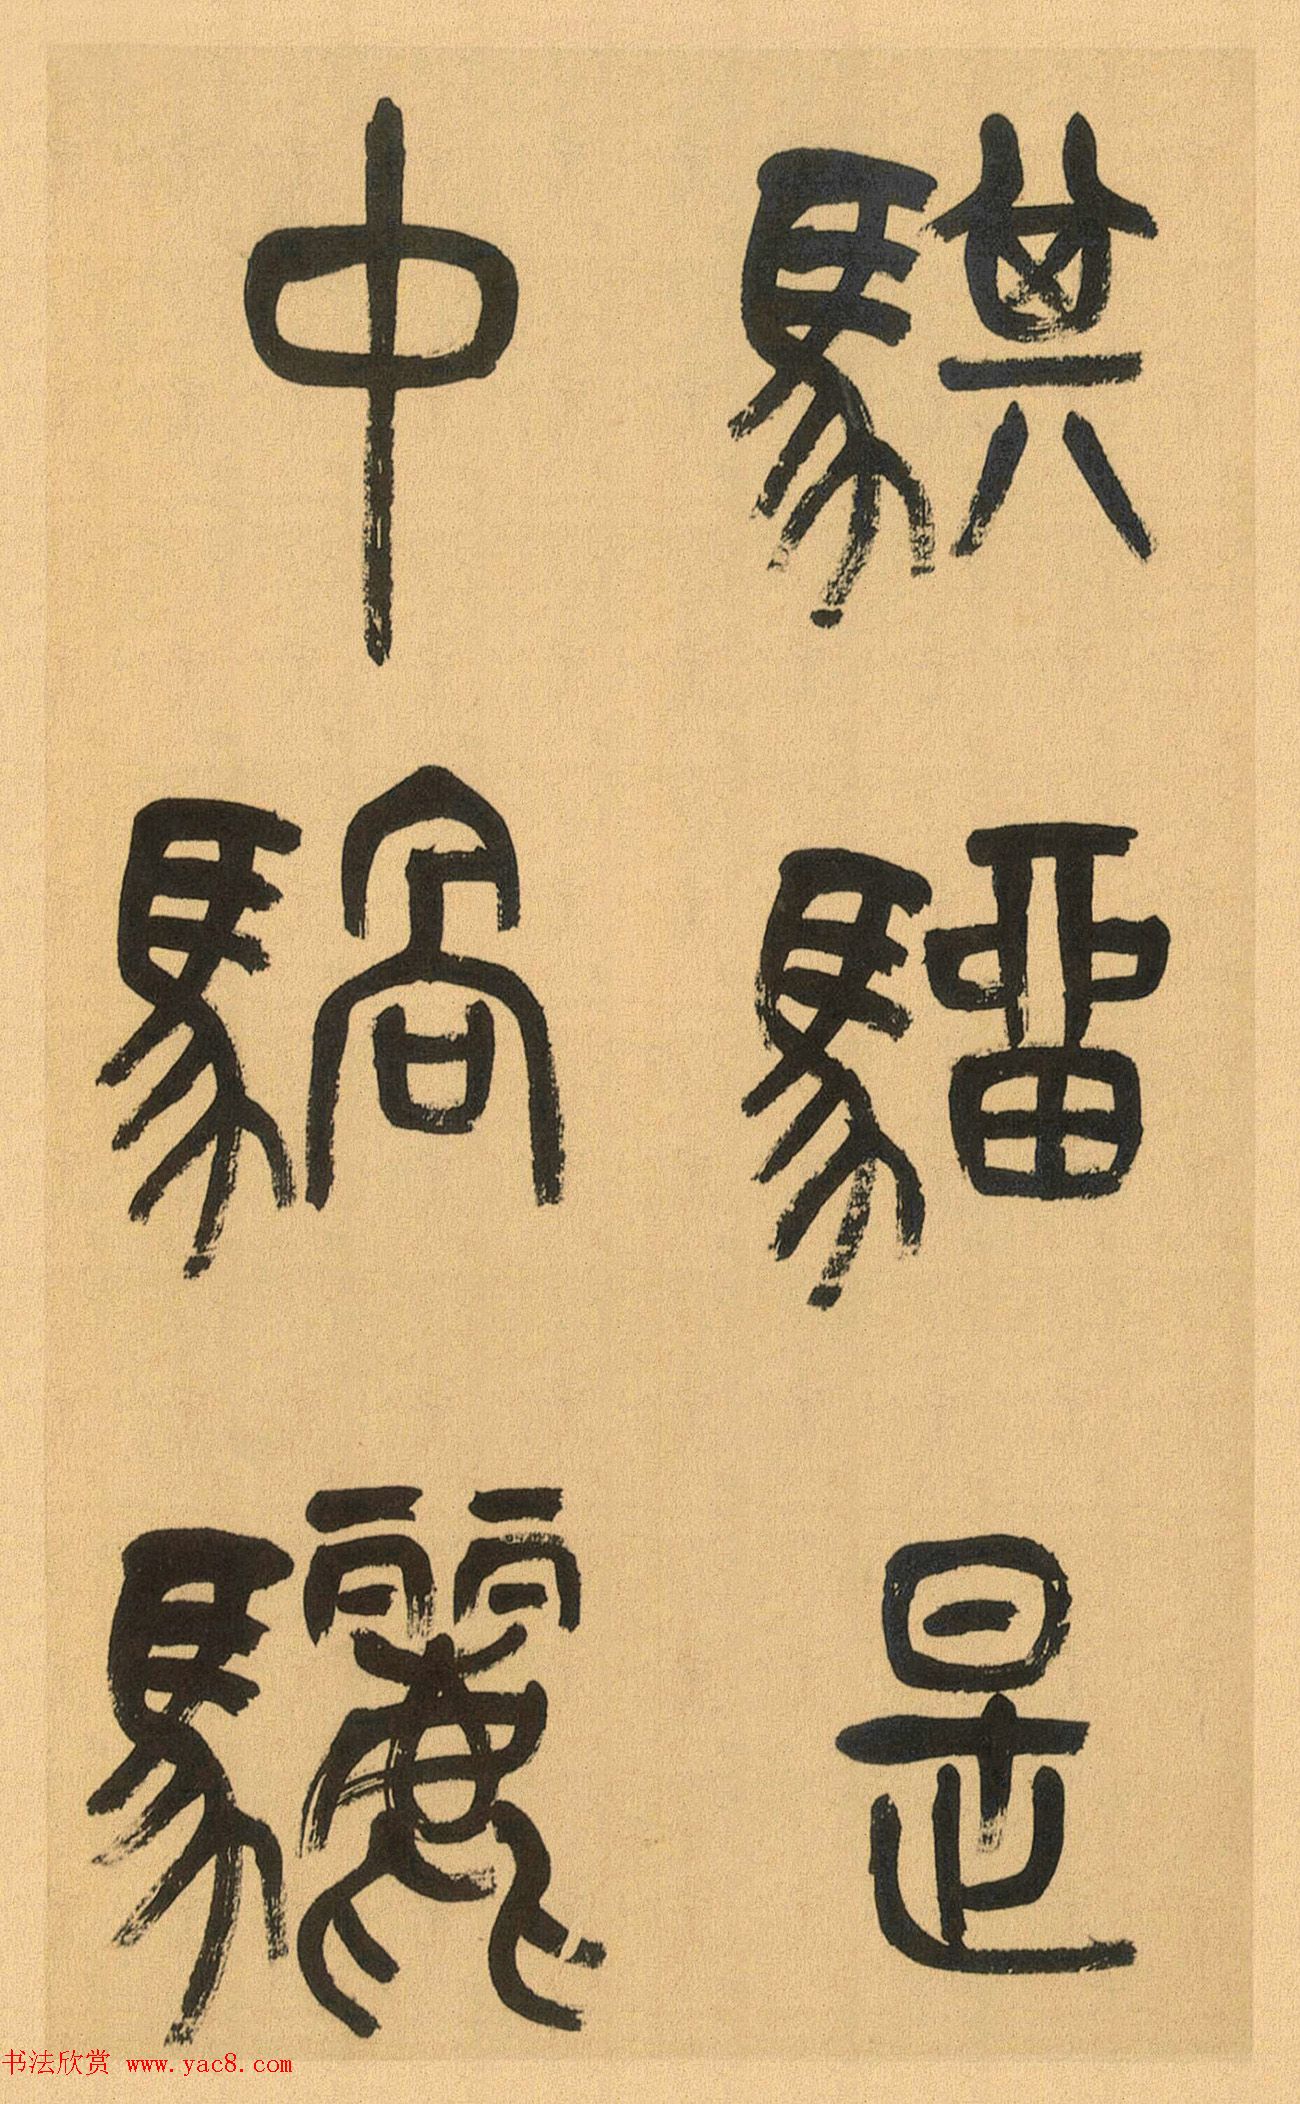 騏騮是
中騧驪
书法欣赏 www.yac8.com